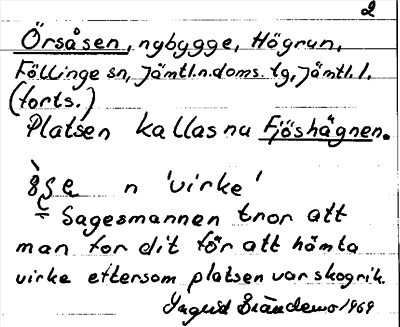 2
Örsåsen, nybygge, Högrun,
Föllinge sn, Jämtl.n.doms. lg, Jämtl.l.
(forts.)
Platsen kallas nu Fjöshägnen.
n 'virke'
Sagesmannen tror att
man for dit för att hämta
virke eftersom platsen var skogrik.
Ingrid 1969